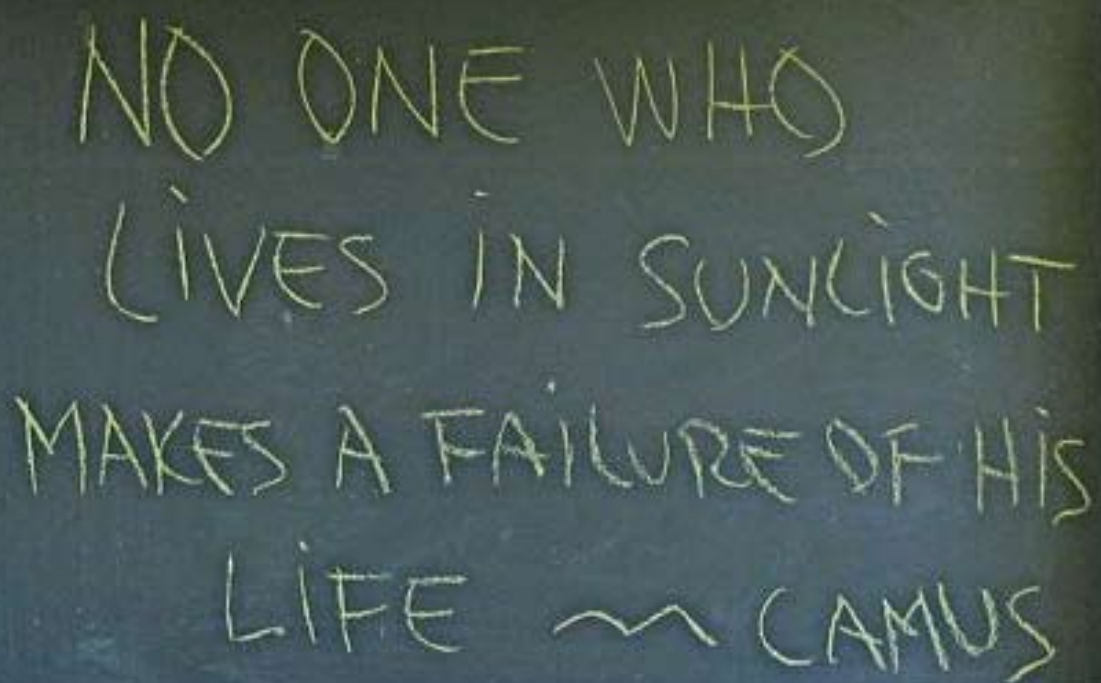 NO ONE WHO
LiVES iN SUNLiGHT
MAKES A FAiLURE OF HiS
LiFE ~ CAMUS